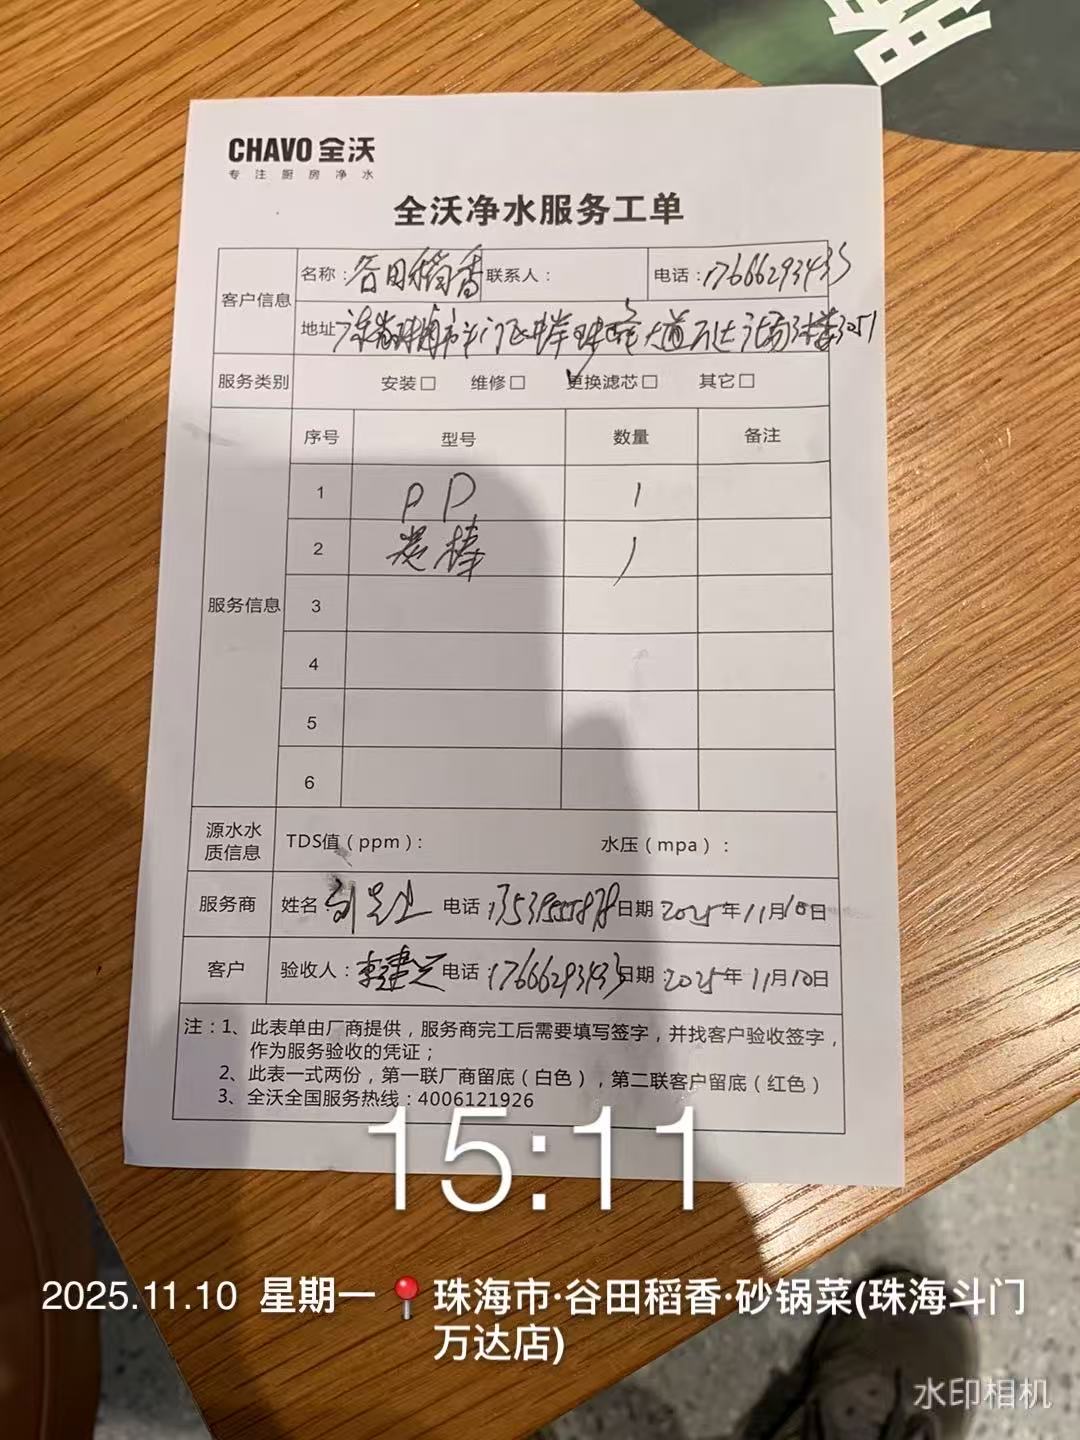 CHAVO 全沃
专注厨房净水
全沃净水服务工单
客户信息
名称：谷田稻香 联系人： 电话：17666293435
地址 珠海市斗门区 大道万达 3051
服务类别 安装□ 维修□ 更换滤芯□ 其它□
服务信息
序号 型号 数量 备注
1 PP 1
2 炭棒 1
3
4
5
6
源水水质信息 TDS值（ppm）： 水压（mpa）：
服务商 姓名 刘先生 电话 日期 2025年11月10日
客户 验收人：李建兴 电话：17666293435 日期 2025年11月10日
注：1、此表单由厂商提供，服务商完工后需要填写签字，并找客户验收签字，
作为服务验收的凭证；
2、此表一式两份，第一联厂商留底（白色），第二联客户留底（红色）
3、全沃全国服务热线：4006121926
15:11
2025.11.10 星期一 珠海市·谷田稻香·砂锅菜(珠海斗门
万达店)
水印相机